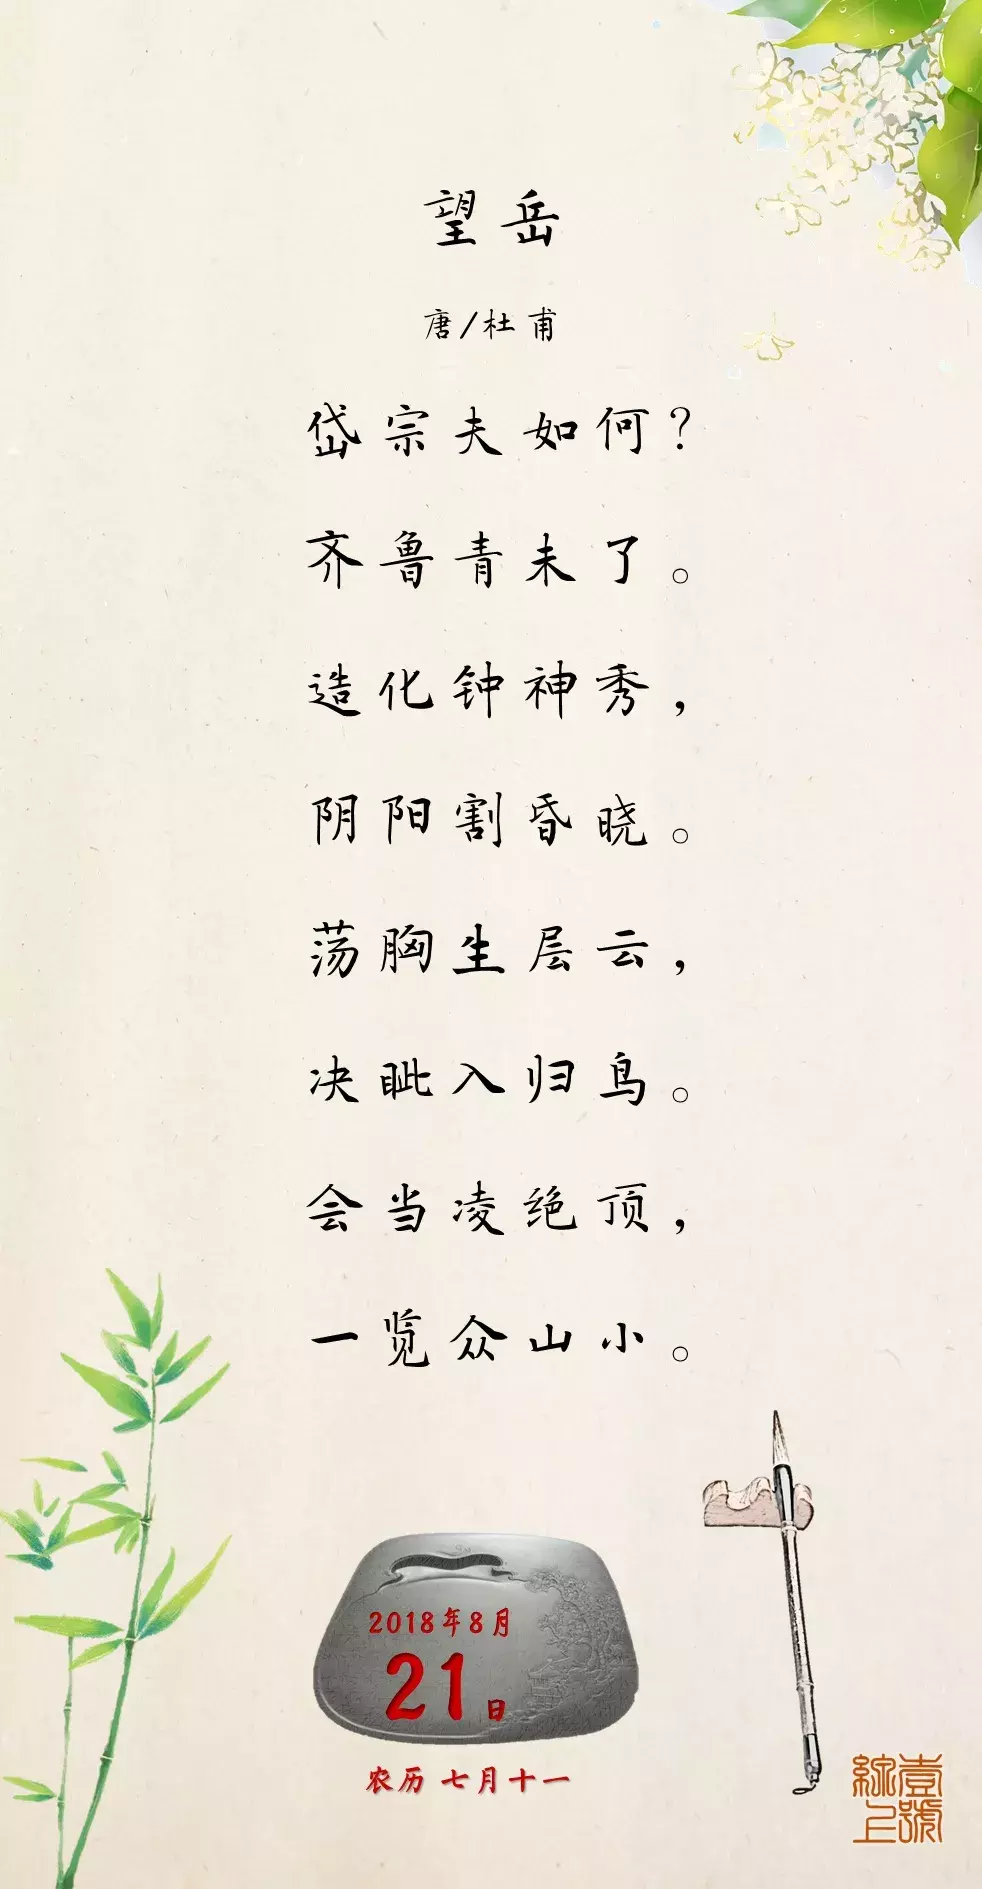 望岳
唐/杜甫
岱宗夫如何?
齐鲁青未了。
造化钟神秀，
阴阳割昏晓。
荡胸生层云，
决眦入归鸟。
会当凌绝顶，
一览众山小。
2018年8月
21日
农历 七月十一
壹號
綜上